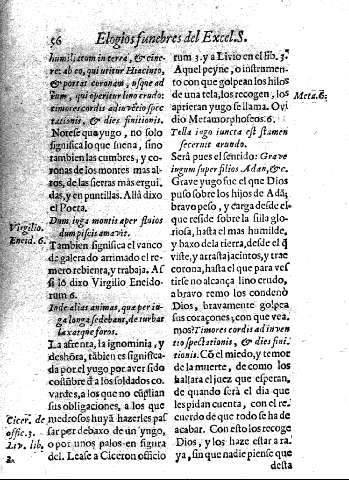 56 Elogios funebres del Excel.S.
humiliatum in terra, & cine-
re: ab eo, qui utitur Hiacinto,
& portat coronam, usque ad
eum, qui operitur lino crudo:
timores cordis adinvētio spec
tationis, & dies finitionis.
Notese que yugo, no solo
significa lo que suena, sino
tambien las cumbres, y co-
ronas de los montes mas al-
tos, de las sierras mas ergui-
das, y en puntillas. Allà dixo
el Poeta.
Virgilio.
Eneid. 6.
Dum juga montis aper fluios
dum piscis amavit.
Tambien significa el vanco
de galera do arrimado el re-
mero rebienta, y trabaja. Af
si lo dixo Virgilio Eneido-
rum 6.
Inde alias animas, quæ per iu-
ga longa sedebant, deturbat
laxatque foros.
La afrenta, la ignominia, y
deshōra, tābien es significa-
da por el yugo por aver sido
costūbre d̄ a los soldados co-
vardes, a los que no cūplian
sus obligaciones, a los que
medrosos huyā hazerles paf
sar por debaxo de un yngo,
o por unos palos en figura
del. Lease a Ciceron officio
Cicer. de
offic. 3.
Liv. lib.
2.
rum 3. y a Livio en el lib. 3.
Aquel peyne, o instrumen-
to con que golpean los hilos
de una tela, los recogen, los
aprieran yugo se llama. Ovi
dio Metamorphoseos. 6.
Meta. 6.
Tella iugo iuncta est stamen
secernit arundo.
Serà pues el sentido: Grave
iugum super filios Adan, &c.
Grave yugo fue el que Dios
puso sobre los hijos de Adā;
bravo peso, y carga desde el
que reside sobre la silla glo-
riosa, hasta el mas humilde,
y baxo de la tierra, desde el q̄
viste, y arrasta jacintos, y trae
corona, hasta el que para ves
tirse no alcança lino crudo,
a bravo remo los condenò
Dios, bravamente golpea
sus coraçones; con que vea-
mos? Timores cordis ad inven
tio spectationis, & dies fini-
tionis. Cō el miedo, y temor
de la muerte, de como los
hallara el juez que esperan,
de quando serà el dia que
les pidan cuenta, con el re-
cuerdo de que todo se ha de
acabar. Con esto los recoge
Dios, y los haze estar a ra-
ya, sin que nadie piense que
desta